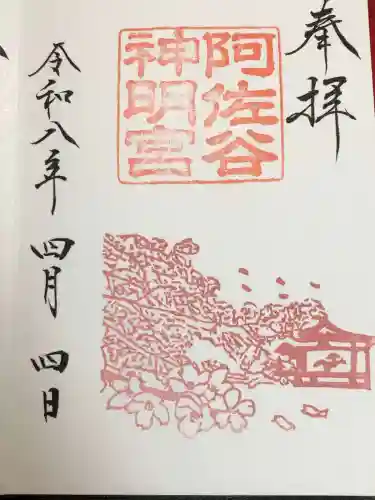 奉拝
阿佐谷
神明宮
令和八年 四月 四日